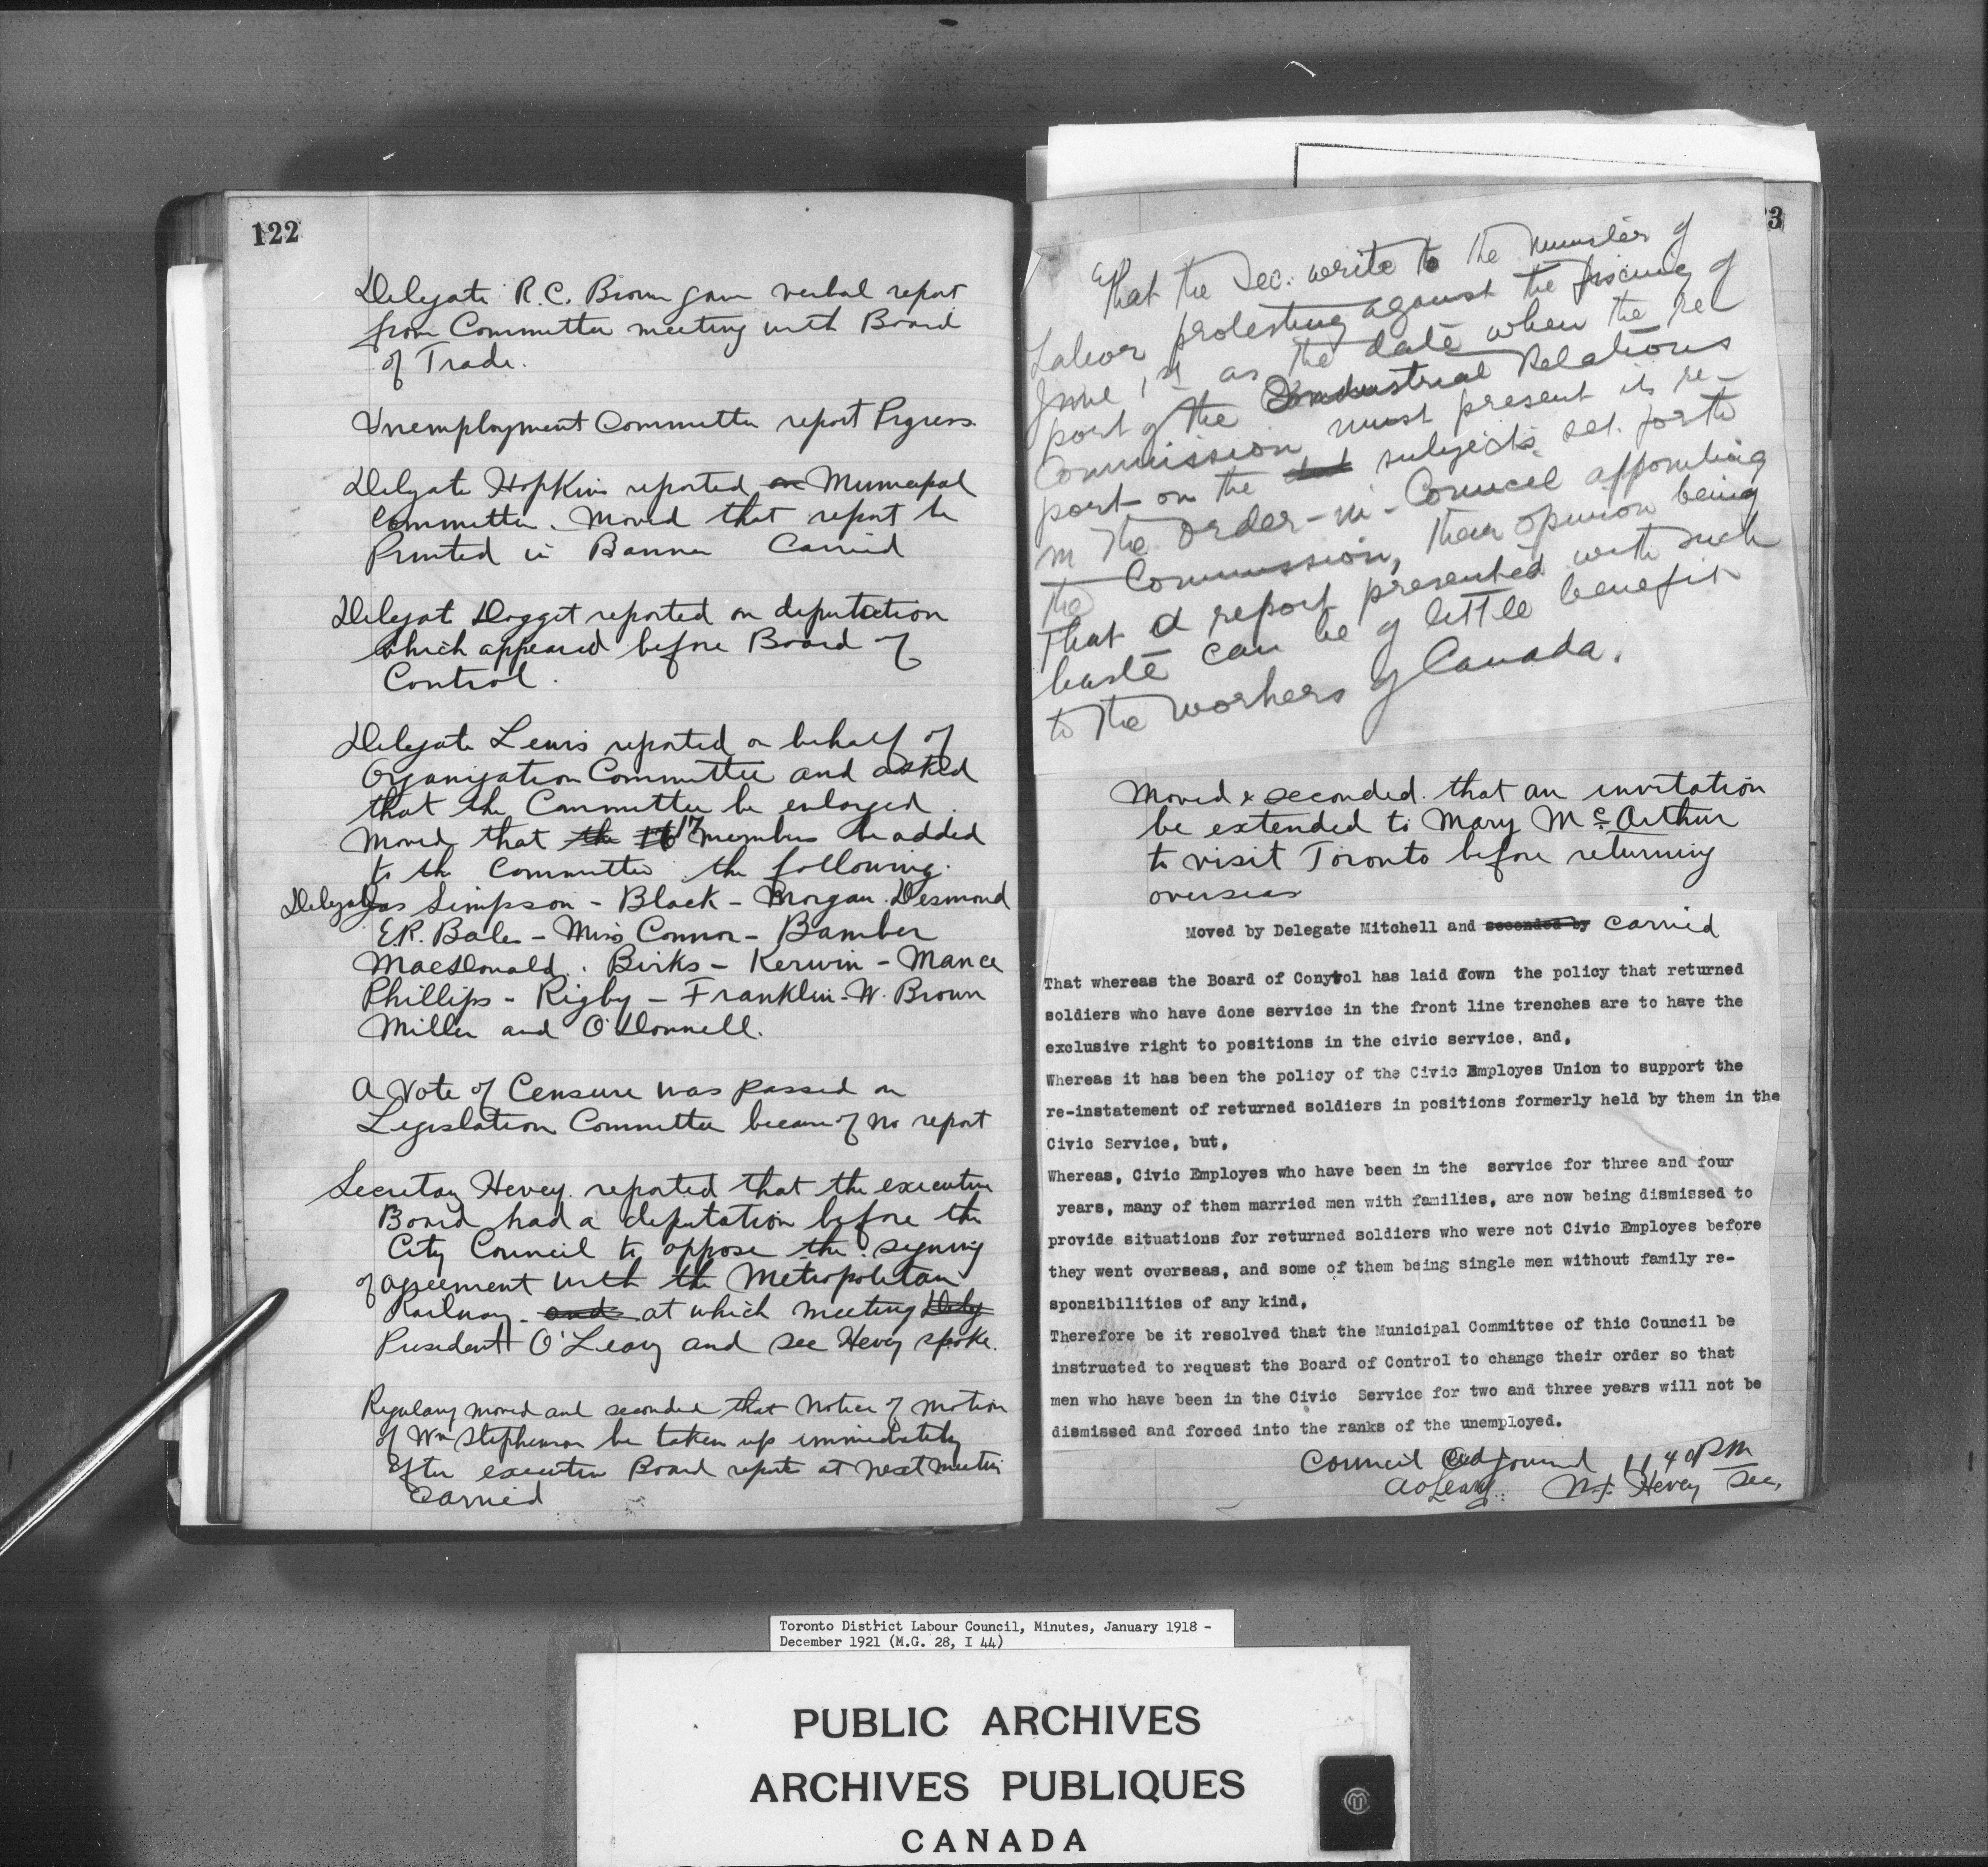 122
Delegate R.C. Brown gave verbal report
from Committee meeting with Board
of Trade.
Unemployment Committee report Prgress.
Delegate Hopkins reported on Municipal
Committee. Moved that report be
Printed in Banner Carried
Delegat Dogget reported on deputation
which appeared before Board of
Control.
Delegate Lewis reported on behalf of
Organization Committee and asked
that the Committee be enlarged.
Moved that the 16 17 members be added
to the Committee the following.
Delegates Simpson - Black - Morgan. Desmond
E.R. Bales - Miss Connor - Bamber
MacDonald. Birks - Kerwin - Mance
Phillips - Rigby - Franklin - W. Brown
Miller and O'Donnell.
A Vote of Censure was passed on
Legislation Committee because of no report
Secretary Hevey reported that the executive
Board had a deputation before the
City Council to oppose the signing
of agreement with the Metropolitan
Railway and at which meeting Dely
President O'Leary and see Hevey spoke.
Regulary moved and seconded that Notice of Motion
of Wm Stephenson be taken up immediately
after executive Board report at next meetin
Carried
3
That the Sec. write to the Minister of
Labor protesting against the fixing of
June 1st as the date when the re
port of the Industrial Relations
Commission must present its re-
port on the subjects set forth
in the Order-in-Council appointing
the Commission, their opinion being
that a report presented with such
haste can be of little benefit
to the workers of Canada.
Moved & seconded that an invitation
be extended to Mary McArthur
to visit Toronto before returning
overseas
Moved by Delegate Mitchell and seconded by Carried
That whereas the Board of Conytol has laid down the policy that returned
soldiers who have done service in the front line trenches are to have the
exclusive right to positions in the civic service, and,
Whereas it has been the policy of the Civic Employes Union to support the
re-instatement of returned soldiers in positions formerly held by them in the
Civic Service, but,
Whereas, Civic Employes who have been in the service for three and four
years, many of them married men with families, are now being dismissed to
provide situations for returned soldiers who were not Civic Employes before
they went overseas, and some of them being single men without family re-
sponsibilities of any kind,
Therefore be it resolved that the Municipal Committee of this Council be
instructed to request the Board of Control to change their order so that
men who have been in the Civic Service for two and three years will not be
dismissed and forced into the ranks of the unemployed.
Council adjourned 11 40 PM
A O'Leary W.J. Hevey Sec.
Toronto District Labour Council, Minutes, January 1918 -
December 1921 (M.G. 28, I 44)
PUBLIC ARCHIVES
ARCHIVES PUBLIQUES
CANADA